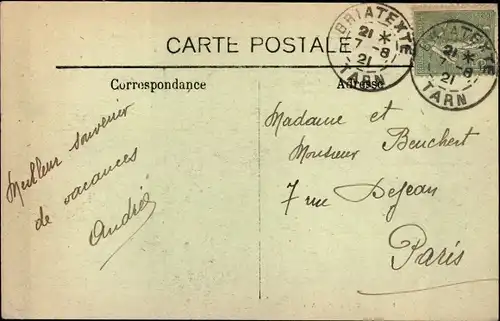 CARTE POSTALE
Correspondance
Adresse
BRIATEXTE
21 *
7 -8
21
TARN
BRIATEXTE
21 *
7 -8
21
TARN
Meilleur souvenir
de vacances
André
Madame et
Monsieur Beuchert
7 rue Dejean
Paris